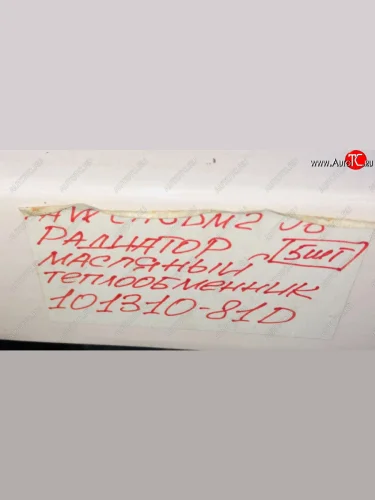 www.AutoTC.ru
РАДИАТОР
МАСЛЯНЫЙ 5шт
ТЕПЛООБМЕННИК
101310-81D